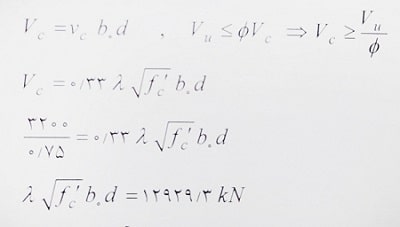 V_c = v_c b_o d , V_u ≤ ϕV_c ⇒ V_c ≥ V_u / ϕ
V_c = ۰/۳۳ λ √f_c′ b_o d
۳۲۰۰ / ۰/۷۵ = ۰/۳۳ λ √f_c′ b_o d
λ √f_c′ b_o d = ۱۲۹۲۹/۳ kN